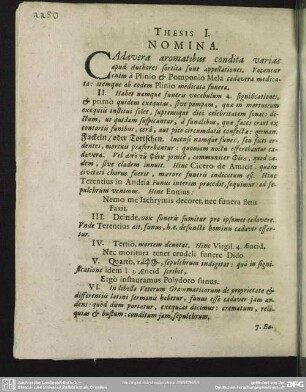 THESIS I.
NOMINA.
CAdavera aromatibus condita varias
apud Authores sortita sunt appellationes. Vocantur
enim à Plinio & Pomponio Mela cadavera medica-
ta: itemque ab eodem Plinio medicata funera.
II. Habet namque funeris vocabulum 4. significationes,
& primò quidem exequias, sive pompam, quæ in mortuorum
exequiis institui solet, supremque diei celebritatem sonat: di-
ctum, ut quidam suspicantur, à funalibus, quæ faces erant ex
contortis funibus, cerâ, aut pice circumdatis confectæ: german.
Fackeln/ oder Tortschen. Incensi namque funes, seu faces ar-
dentes, mortuis præferebantur: quonam nocte efferebantur ca-
davera. Vel
sive cladem innuit. Hinc Cicero de Amicit. quàm
civitati charus fuerit, mœrore funeris indicatum est. Hinc
Terentius in Andria funus interim procedit, sequimur: ad se-
pulchrum venimus. Hinc Ennius:
Nemo me lachrymis decoret, nec funera fletu
Faxit.
III. Deinde, vox funeris sumitur pro ipsomet cadavere.
Unde Terentius ait, funus, h.e. defuncti hominis cadaver effer-
tur.
IV. Tertiò, mortem denotat. Hinc Virgil. 4. Æneid.
Nec moritura tenet crudeli funere Dido.
V. Quartò, sepulchrum indigitat: quâ in signifi-
catione idem l. 3. Æneid. scribit,
Ergò instauramus Polydoro funus.
VI. In libello Veterum Grammaticorum de proprietate &
differentia latini sermonis habetur, funus esse cadaver jam ar-
dens: quod dùm portatur, exequias dicimus: crematum, reli-
quias & bustum: conditum jam, sepulchrum.